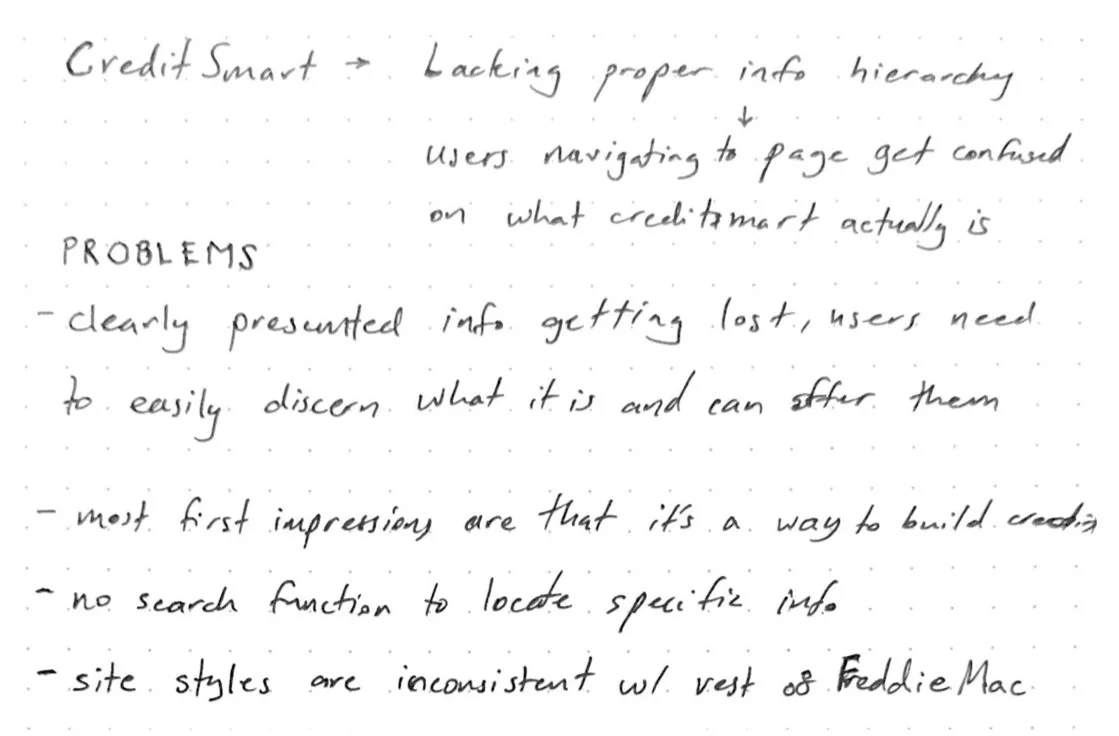 CreditSmart → Lacking proper info hierarchy
↓
users navigating to page get confused
on what creditsmart actually is
PROBLEMS
- clearly presented info getting lost, users need
to easily discern what it is and can offer them
- most first impressions are that it's a way to build credit
- no search function to locate specific info
- site styles are inconsistent w/ rest of Freddie Mac